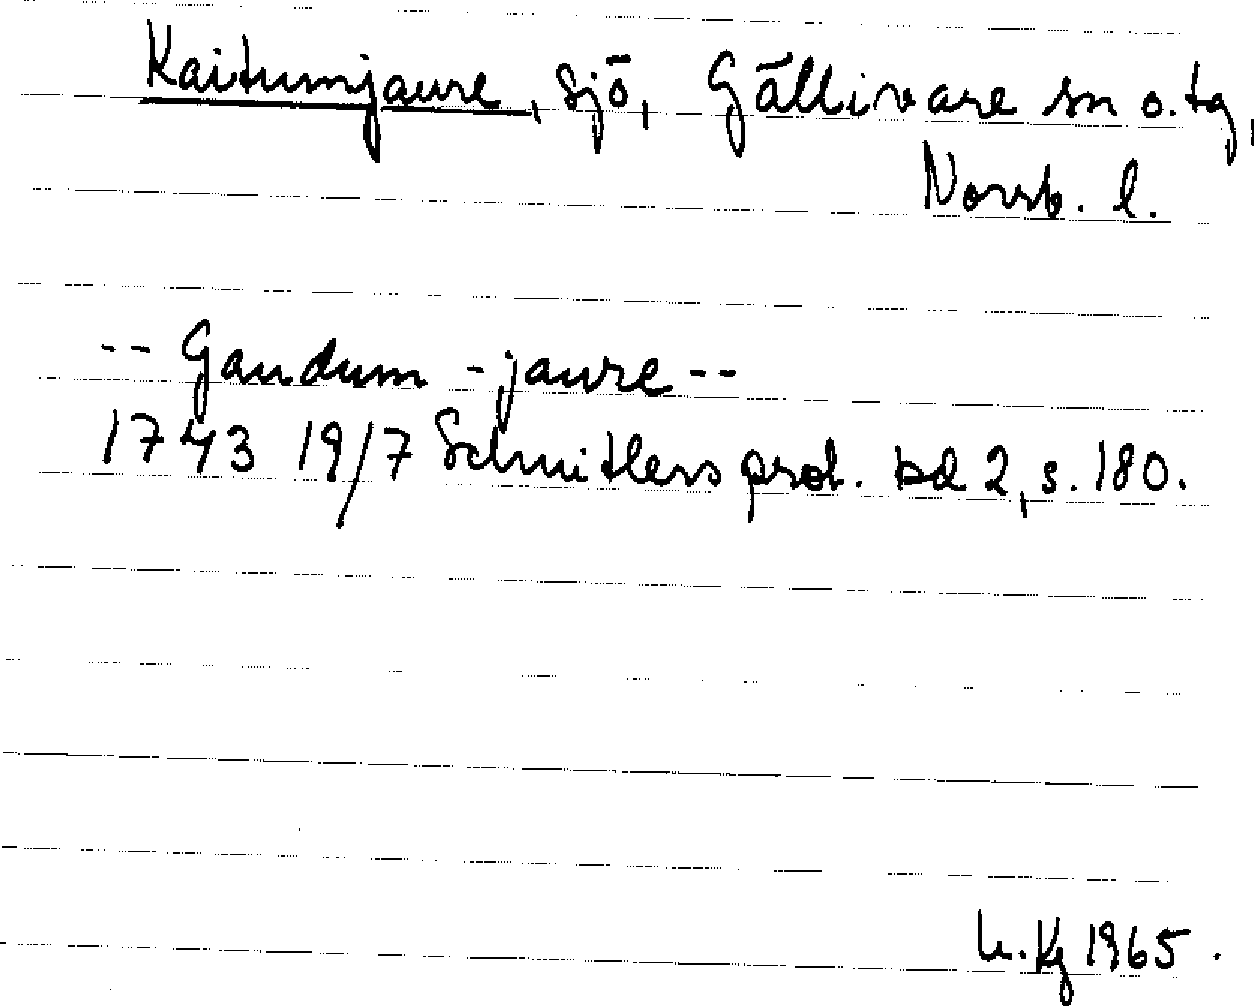 Kaitumjaure, sjö, Gällivare sn o. tg,
Norrb. l.
-- Gaudum -jaure --
1743 19/7 Schnitlers prot. bd 2, s. 180.
U. Kg 1965.